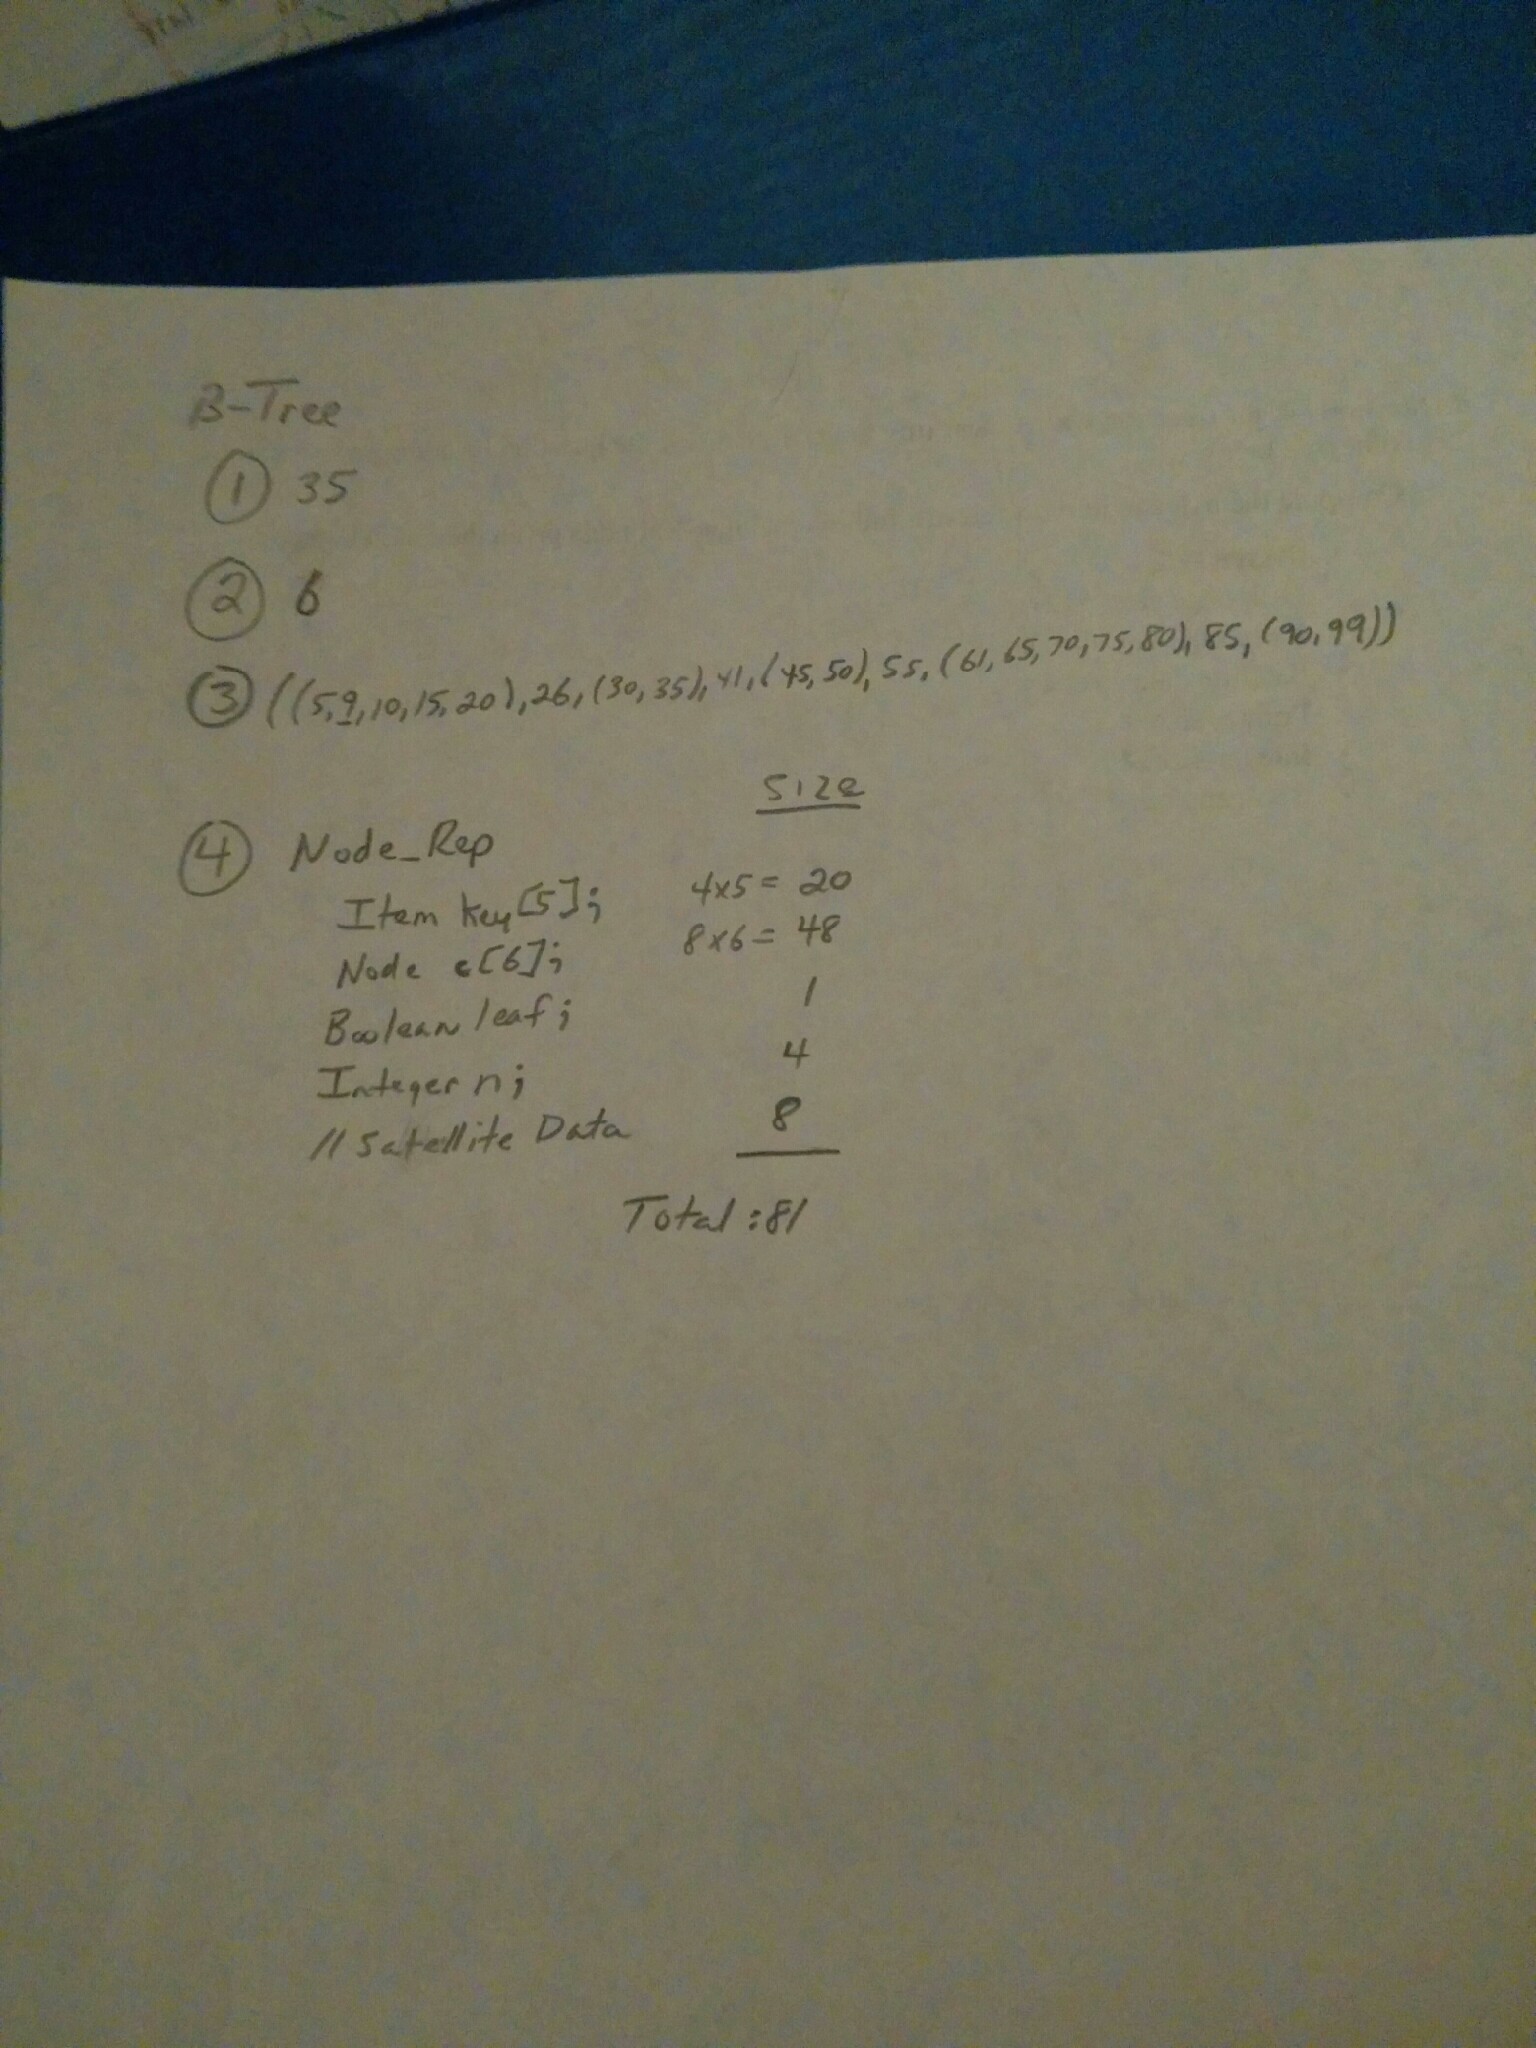 B-Tree
① 35
② 6
③ ((5,9,10,15,20),26,(30,35),41,(45,50),55,(61,65,70,75,80),85,(90,99))
Size
④ Node_Rep
Item key[5]; 4x5= 20
Node c[6]; 8x6= 48
Boolean leaf; 1
Integer n; 4
// Satellite Data 8
Total:81